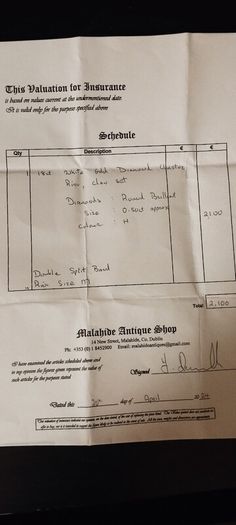 This Valuation for Insurance
is based on values current at the undermentioned date.
It is valid only for the purpose specified above
Schedule
Qty Description € €
1 18ct White Gold Diamond
Ring, claw set
Diamonds : Round Brilliant
Size : 0.50ct approx
colour : H
2,100
Double Split Band
Ring Size M
Total 2,100
Malahide Antique Shop
14 New Street, Malahide, Co. Dublin
Ph: +353 (0) 1 8452900 Email: malahideantiques@gmail.com
I have examined the articles scheduled above and
in my opinion the figures given represent the value of
such articles for the purpose stated
Signed
Dated this day of April 20